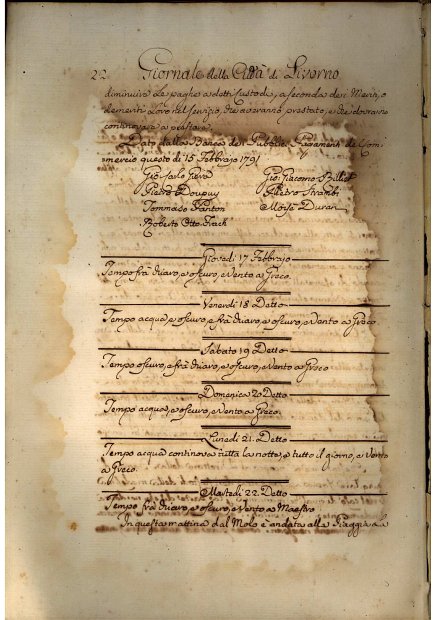 22. Giornale della Città di Livorno
diminuire le paghe a detti Custodi, a seconda dei Meriti, o
demeriti loro nel servizio, che averanno prestato, e che dovranno
continovare a prestare.
Dato dalla Banca dei Pubblici Pagamenti di Com-
mercio questo dì 15 Febbrajo 1791
Gio: Carlo Gio: Giacomo
Pietro Doupuy Pietro Strambi
Tommaso Panton Moisè Duran
Roberto Otto Frach
Giovedì 17 Febbrajo
Tempo frà chiaro, e oscuro, e Vento a Greco.
Venerdì 18 Detto
Tempo acqua, e oscuro, e frà chiaro, e oscuro, e Vento a Greco
Sabato 19 Detto
Tempo oscuro, e frà chiaro, e oscuro, e Vento a Greco
Domenica 20 Detto
Tempo acqua, e oscuro, e Vento a Greco.
Lunedì 21. Detto
Tempo acqua continova tutta la notte, e tutto il giorno, e Vento
a Greco.
Martedì 22. Detto
Tempo frà chiaro, e oscuro, e Vento a Maestro
In questa mattina dal Molo è andata alla Piaggia la